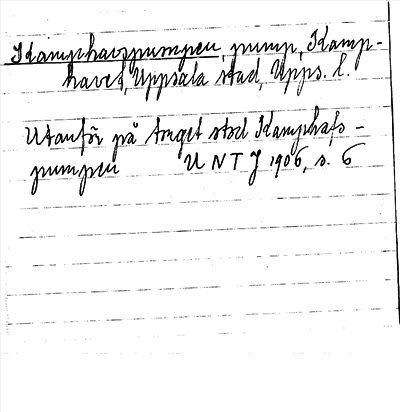 Kamphavspumpen, pump, Kamp-
havet, Uppsala stad, Upps. l.
Utanför på torget stod Kamphafs-
pumpen U N T J 1906, s. 6